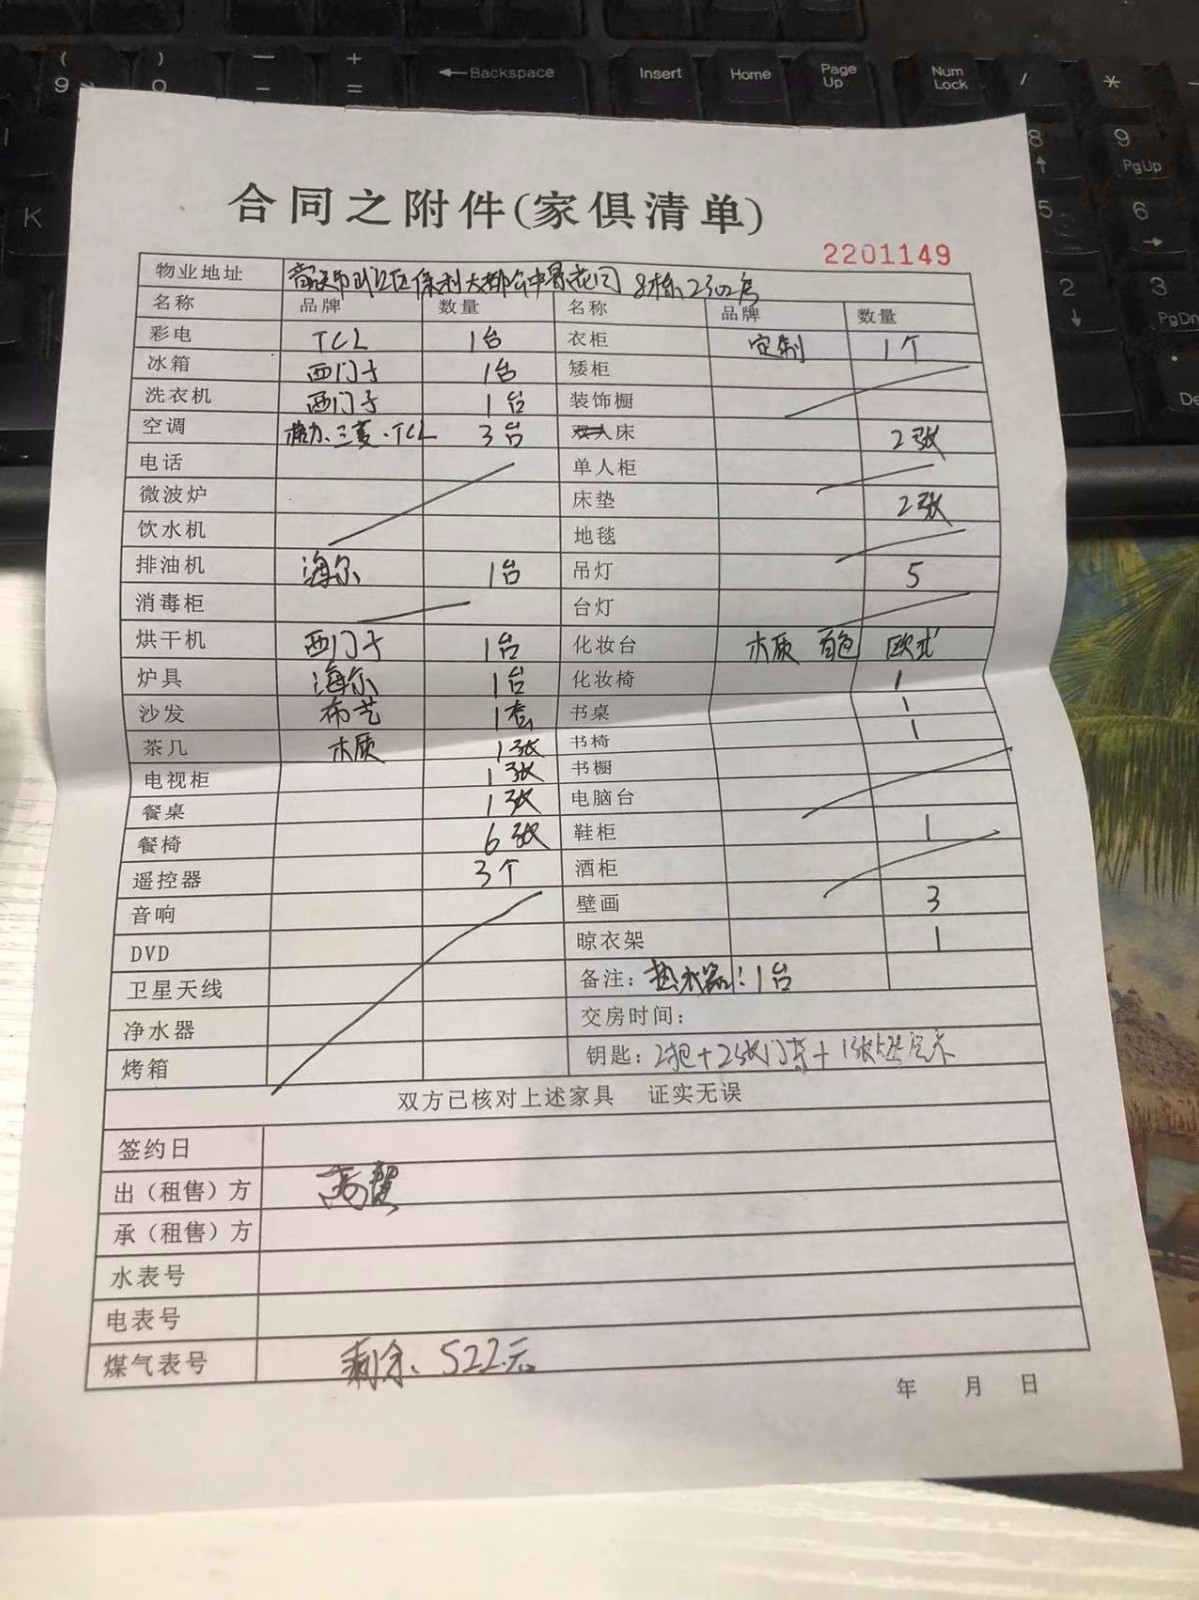 ( 9 ) 0 — - + = ←Backspace Insert Home Page Up Num Lock / *
K 8 ↑ 9 PgUp 5 6 → 2 ↓ 3 PgDn . De
合同之附件(家俱清单)
2201149
物业地址 保利大都会中景花园8栋2302房
名称 品牌 数量 名称 品牌 数量
彩电 TCL 1台 衣柜 定制 1个
冰箱 西门子 1台 矮柜
洗衣机 西门子 1台 装饰橱
空调 格力、三菱、TCL 3台 双人床 2张
电话 单人柜
微波炉 床垫 2张
饮水机 地毯
排油机 海尔 1台 吊灯 5
消毒柜 台灯
烘干机 西门子 1台 化妆台 木质 白色 欧式
炉具 海尔 1台 化妆椅 1
沙发 布艺 1套 书桌 1
茶几 木质 1张 书椅 1
电视柜 1张 书橱
餐桌 1张 电脑台
餐椅 6张 鞋柜 1
遥控器 3个 酒柜
音响 壁画 3
DVD 晾衣架 1
卫星天线 备注：热水器：1台
净水器 交房时间：
烤箱 钥匙：2把+2张门禁+1张
双方已核对上述家具 证实无误
签约日
出（租售）方
承（租售）方
水表号
电表号
煤气表号 剩余、522元
年 月 日